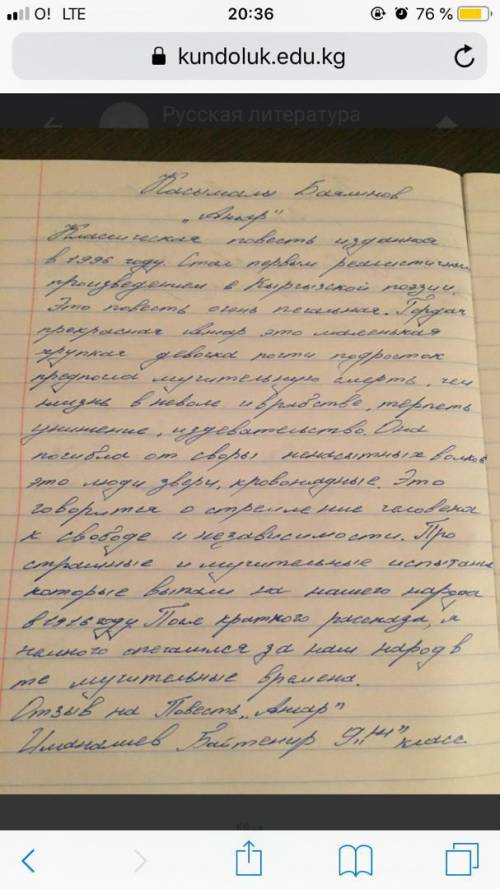 O! LTE 20:36 76 %
kundoluk.edu.kg
Русская литература
Касымалы Баялинов
„Ажар"
Классическая повесть изданная
в 1996 году. Стал первым реалистичн
произведением в Кыргызской поэзии.
Это повесть очень печальная. Гордая
прекрасная Ажар это маленькая
хрупкая девочка почти подросток
предпочла мучительную смерть, чем
жизнь в неволе и в рабстве, терпеть
унижение, издевательство. Она
погибла от своры ненасытных волков
это люди звери, кровожадные. Это
говорится о стремление человека
к свободе и независимости. Про
страшные и мучительные испытания
которые выпали на нашего народа
в 1916 году. После краткого рассказа, я
немного опечалился за наш народ в
те мучительные времена.
Отзыв на Повесть „Ажар"
Иманалиев Байтемир 9„Ж" класс.